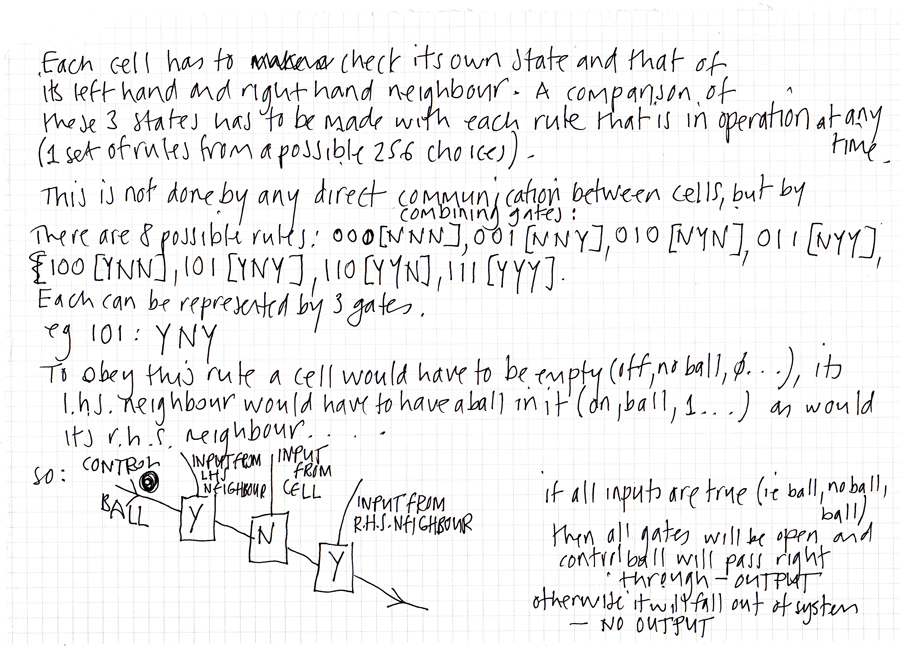 Each cell has to check its own state and that of
its left hand and right hand neighbour. A comparison of
these 3 states has to be made with each rule that is in operation at any
time.
(1 set of rules from a possible 256 choices).
This is not done by any direct communication between cells, but by
combining gates:
There are 8 possible rules: 000 [NNN], 001 [NNY], 010 [NYN], 011 [NYY],
100 [YNN], 101 [YNY], 110 [YYN], 111 [YYY].
Each can be represented by 3 gates.
eg 101: YNY
To obey this rute a cell would have to be empty (off, no ball, ø...), its
l.h.s. neighbour would have to have a ball in it (on, ball, 1...) as would
its r.h.s. neighbour.....
so: CONTROL
BALL
INPUT FROM
LHS
NEIGHBOUR
INPUT
FROM
CELL
INPUT FROM
R.H.S. NEIGHBOUR
Y
N
Y
if all inputs are true (ie ball, no ball,
ball)
then all gates will be open and
control ball will pass right
through - OUTPUT
otherwise it will fall out of system
- NO OUTPUT